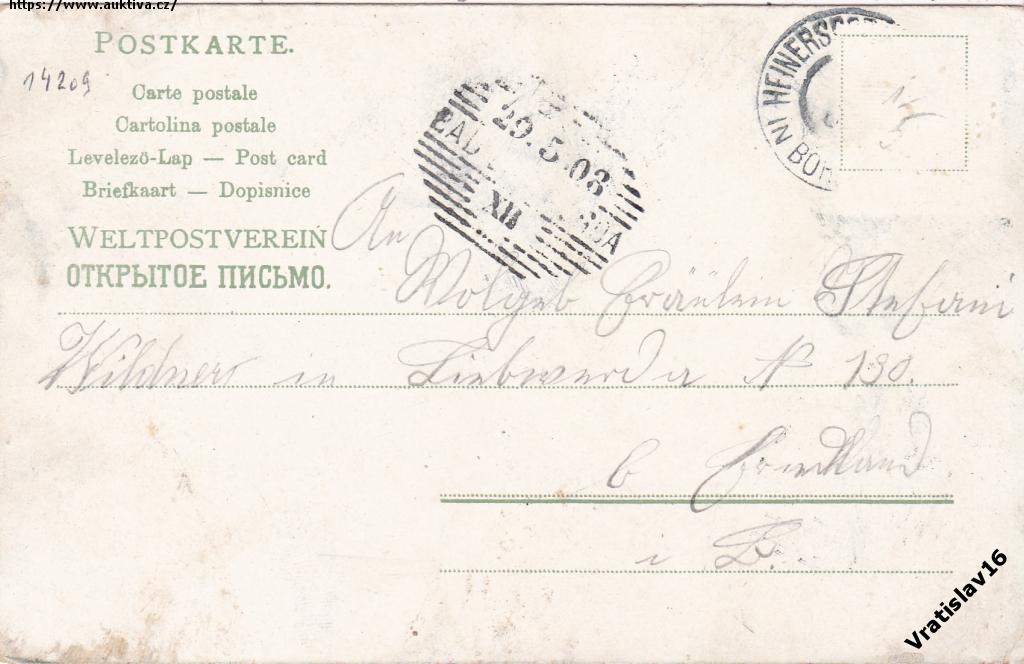 https://www.auktiva.cz/
POSTKARTE.
14209
Carte postale
Cartolina postale
Levelező-Lap — Post card
Briefkaart — Dopisnice
WELTPOSTVEREIN
ОТКРЫТОЕ ПИСЬМО.
29.5.03
XII
HEINERSDO
IN BÖ
An
Wolgeb Fräulein Stefani
Wildner in Liebwerda N 130.
b Friedland
i B.
Vratislav16